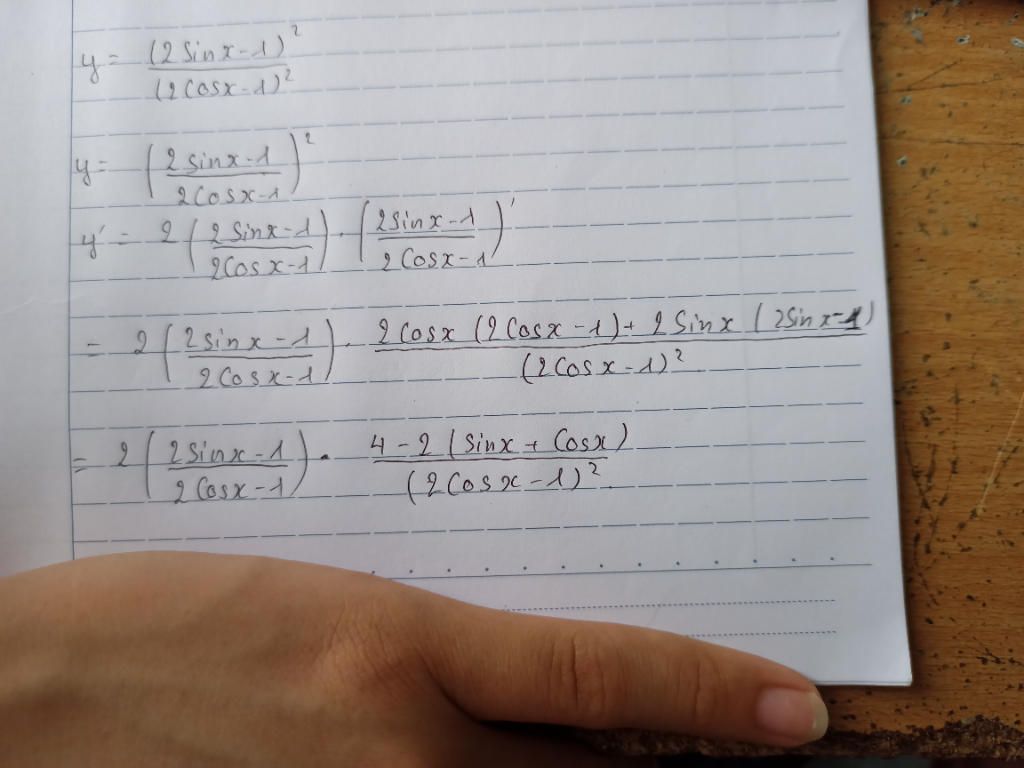 y = (2 sin x - 1)² / (2 cos x - 1)²
y = ( (2 sin x - 1) / (2 Cos x - 1) )²
y' = 2 ( (2 Sin x - 1) / (2 Cos x - 1) ) . ( (2 Sin x - 1) / (2 Cos x - 1) )'
= 2 ( (2 sin x - 1) / (2 Cos x - 1) ) . (2 Cos x (2 Cos x - 1) + 2 Sin x (2 Sin x - 1)) / (2 Cos x - 1)²
= 2 ( (2 Sin x - 1) / (2 Cos x - 1) ) . (4 - 2 (Sin x + Cos x)) / (2 Cos x - 1)²